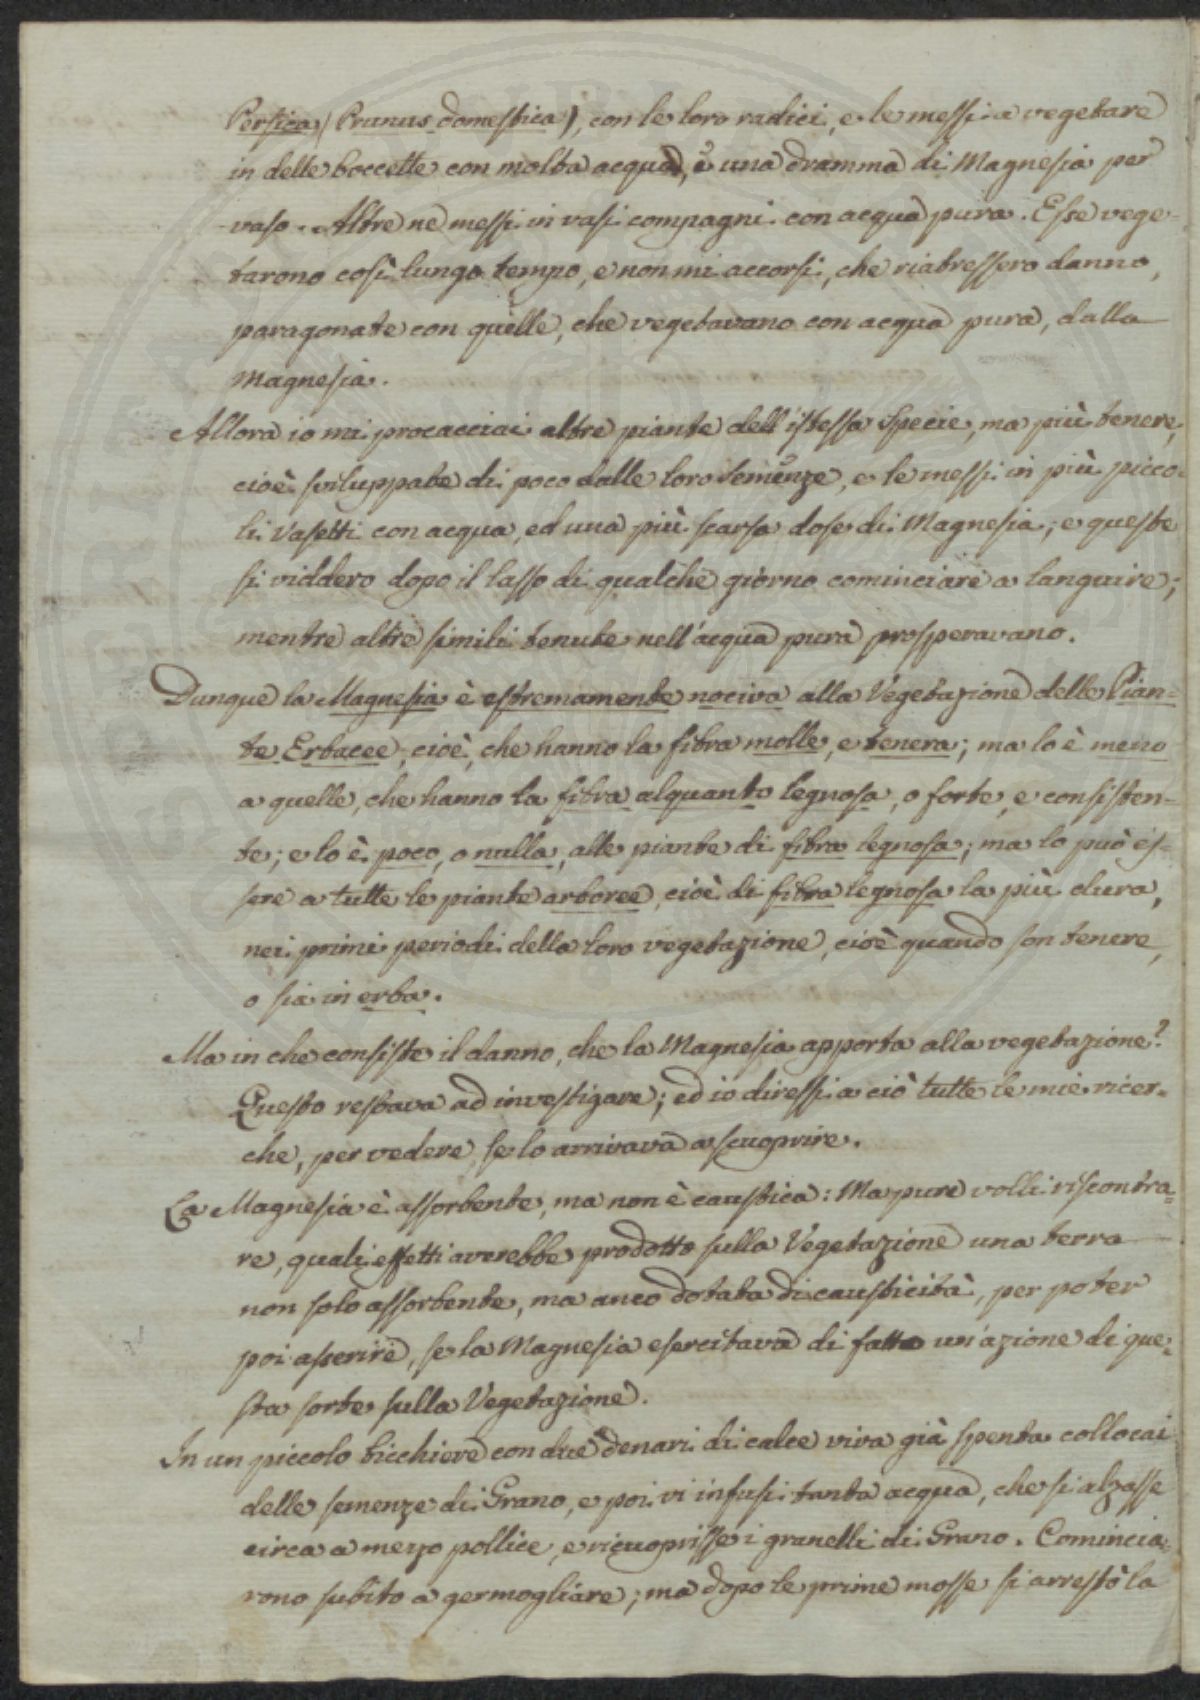 Persica (Prunus domestica), con le loro radici, e le messi a vegetare
in delle boccette con molta acqua, e una dramma di Magnesia per
vaso. Altre ne messi in vasi compagni con acqua pura. Esse vege-
tarono così lungo tempo, e non mi accorsi, che riabressero danno,
paragonate con quelle, che vegetavano con acqua pura, dalla
Magnesia.
Allora io mi procacciai altre piante dell'istessa Specie, ma più tenere,
cioè sviluppate di poco dalle loro Semenze, e le messi in più picco-
li Vasetti con acqua, ed una più scarsa dose di Magnesia; e queste
si viddero dopo il lasso di qualche giorno cominciare a languire;
mentre altre simili tenute nell'acqua pura prosperavano.
Dunque la Magnesia è estremamente nociva alla Vegetazione delle Pian=
te Erbacee, cioè, che hanno la fibra molle, e tenera; ma lo è meno
a quelle, che hanno la fibra alquanto legnosa, o forte, e consisten-
te; e lo è poco, o nulla, alle piante di fibra legnosa; ma lo può es-
sere a tutte le piante arboree, cioè di fibra legnosa la più dura,
nei primi periodi della loro vegetazione, cioè quando son tenere,
o sia in erba.
Ma in che consiste il danno, che la Magnesia apporta alla vegetazione?
Questo restava ad investigare; ed io diressi a ciò tutte le mie ricer-
che, per vedere, se lo arrivava a scuoprire.
La Magnesia è assorbente, ma non è caustica: Ma pure volli riscontra=
re, quali effetti averebbe prodotto sulla Vegetazione una terra
non solo assorbente, ma anco dotata di causticità, per poter
poi asserire, se la Magnesia esercitava di fatto un'azione di que=
sta sorte sulla Vegetazione.
In un piccolo bicchiere con due denari di calce viva già spenta collocai
delle semenze di Grano, e poi vi infusi tanta acqua, che si alzasse
circa a mezzo pollice, e ricuoprisse i granelli di Grano. Comincia=
rono subito a germogliare; ma dopo le prime mosse si arrestò la